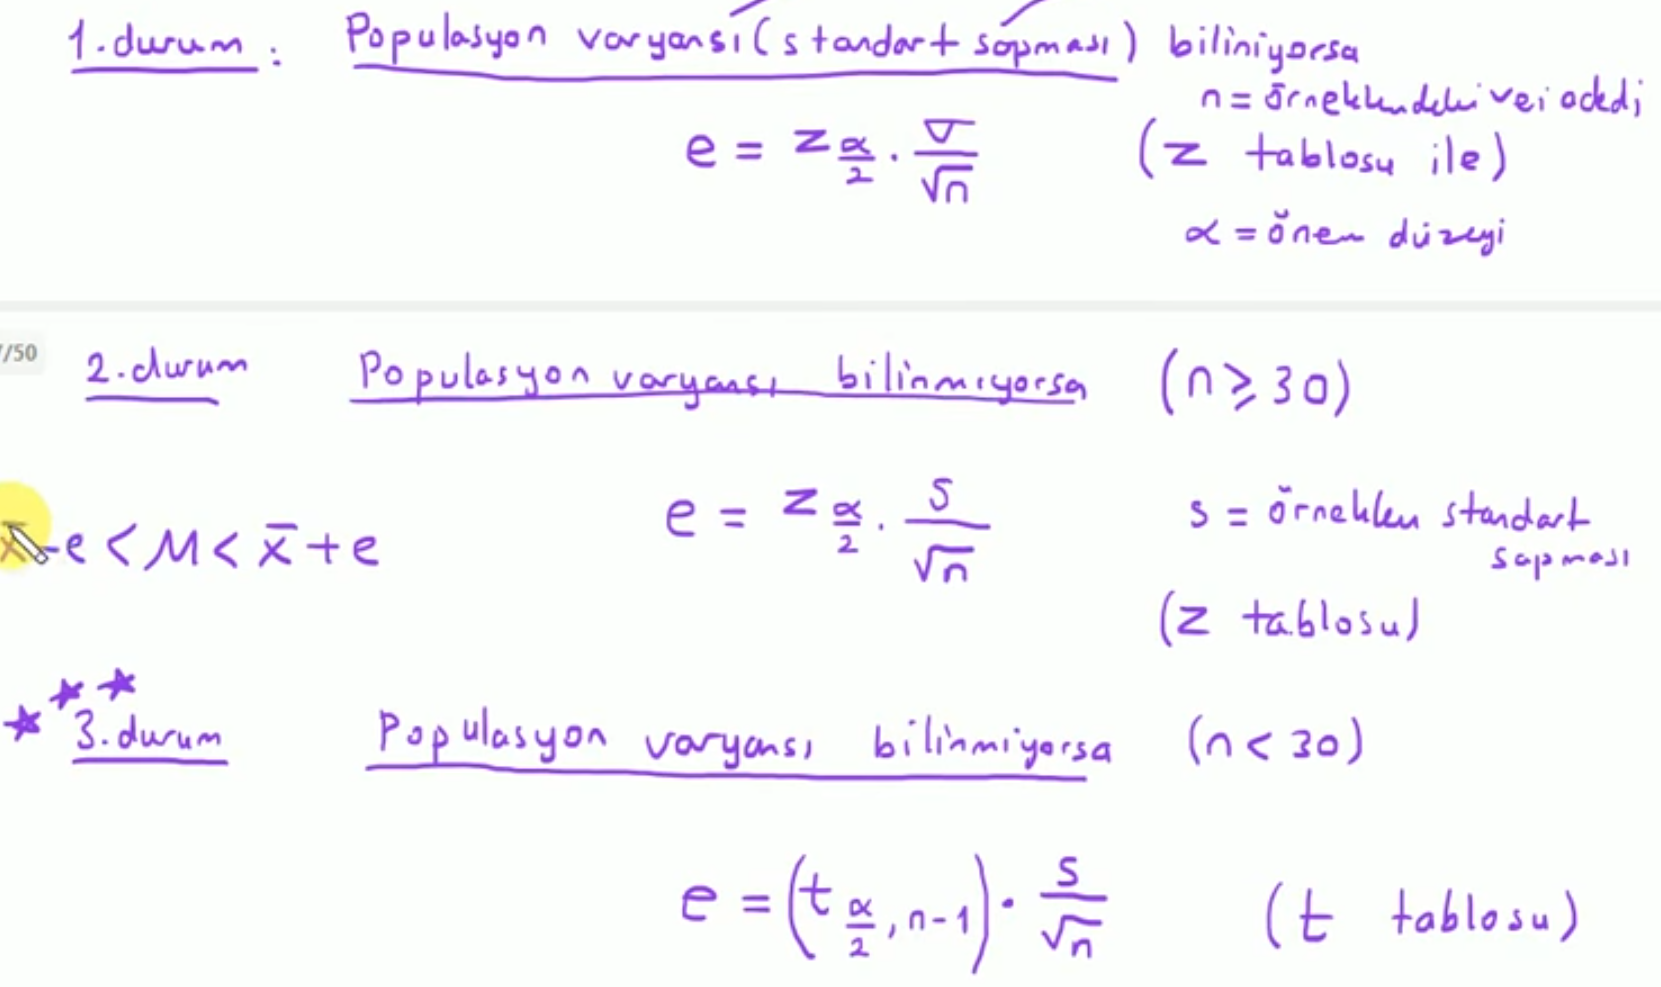 1.durum : Populasyon varyansı (standart sapması) biliniyorsa
n = örneklemdeki veri adedi
e = z α/2 . σ/√n (z tablosu ile)
α = önem düzeyi
/50
2.durum Populasyon varyansı bilinmiyorsa (n ≥ 30)
e = z α/2 . s/√n s = örneklem standart sapması
x̄ - e < M < x̄ + e
(z tablosu)
3.durum Populasyon varyansı bilinmiyorsa (n < 30)
e = (t α/2 , n-1) . s/√n (t tablosu)